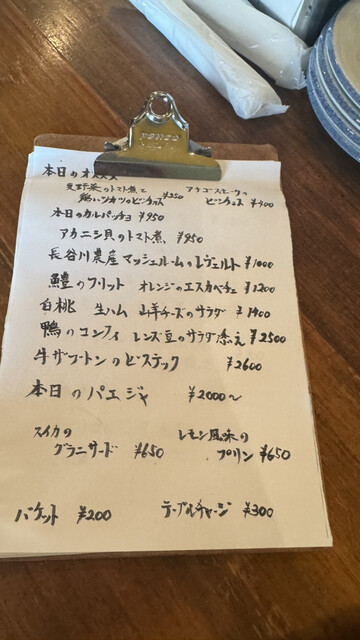 penco
本日のオススメ
夏野菜のトマト煮と アナゴスモークの
鶏ハツカツのピンチョス ¥350 ピンチョス ¥400
本日のカルパッチョ ¥950
アカニシ貝のトマト煮 ¥950
長谷川農産マッシュルームのレヴェルト ¥1000
鱧のフリット オレンジのエスカベチェ ¥1200
白桃 生ハム 山羊チーズのサラダ ¥1400
鴨のコンフィ レンズ豆のサラダ添え ¥2500
牛ザブトンのビステック ¥2600
本日のパエジャ ¥2000〜
スイカの レモン風味の
グラニサード ¥650 プリン ¥650
バケット ¥200 テーブルチャージ ¥300